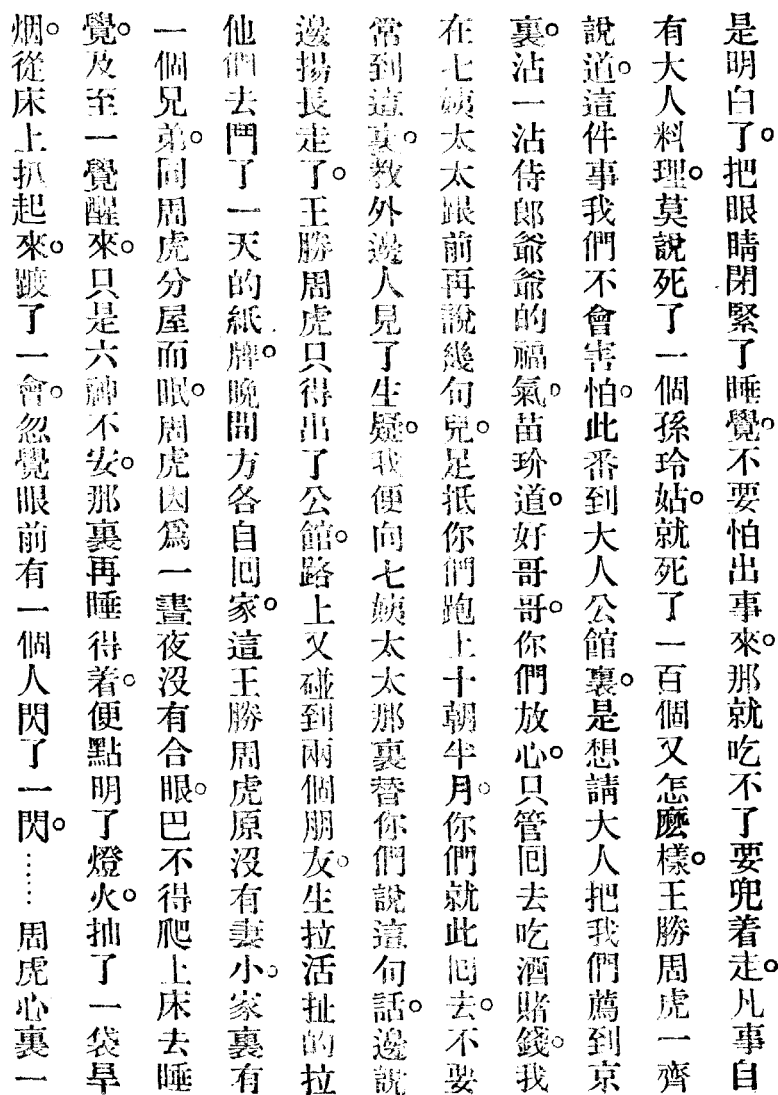 是明白了。把眼睛閉緊了睡覺。不要怕出事來。那就吃不了要兜着走。凡事自
有大人料理。莫說死了一個孫玲姑。就死了一百個又怎麽樣。王勝周虎一齊
說道。這件事我們不會害怕。此番到大人公館裏。是想請大人把我們薦到京
裏。沾一沾侍郎爺爺的福氣。苗玠道。好哥哥。你們放心。只管回去吃酒賭錢。我
在七姨太太跟前再說幾句兒。足抵你們跑上十朝半月。你們就此回去。不要
常到這裏。教外邊人見了生疑。我便向七姨太太那裏替你們說這句話。邊說
邊揚長走了。王勝周虎只得出了公館。路上又碰到兩個朋友。生拉活扯的拉
他們去鬥了一天的紙牌。晚間方各自回家。這王勝周虎原沒有妻小。家裏有
一個兄弟。同周虎分屋而眠。周虎因爲一晝夜沒有合眼。巴不得爬上床去睡
覺。及至一覺醒來。只是六神不安。那裏再睡得着。便點明了燈火。抽了一袋旱
烟。從床上抓起來。踱了一會。忽覺眼前有一個人閃了一閃。……周虎心裏一